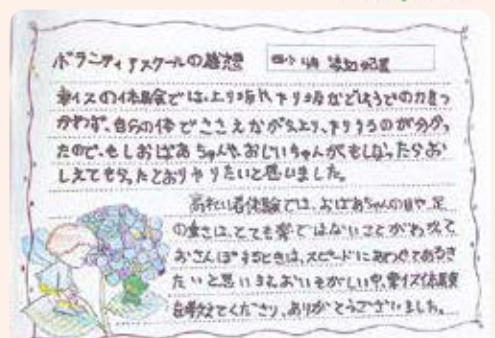 ボランティアスクールの感想
車イスの体験会では、上り坂や下り坂などはうでの力をつ
かわず、自分の体でささえながら上り、下りするのが分かっ
たので、もしおばあちゃんや、おじいちゃんがもしなったらお
しえてもらったとおりやりたいと思いました。
高れい者体験では、おばあちゃんの目や、足
の重さは、とても楽ではないことがわかって
おさんぽするときは、スピードにあわせてあるき
たいと思います。おいそがしい中、車イス体験
を教えてくださり、ありがとうございました。